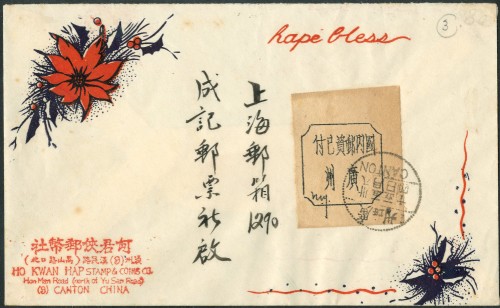 3
hapé bless
上海郵箱1290
成記郵票社啟
國內郵資已付
廣州
CANTON
何君俠郵幣社
廣州(8)漢民路(禹山路口北)
HO KWAN HAP STAMP & COINS CO.
Hon Man Road (north of Yu San Road)
(8) CANTON CHINA